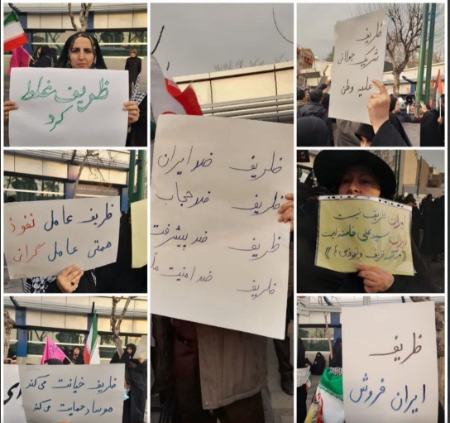 ظریف غلط
کرد
ظریف
ضد ایران
ظریف
ضد حجاب
ظریف
ضد پیشرفت
ظریف
ضد امنیت ما
ظریف
شریک جولانی
علیه وطن
ظریف عامل نفوذ
همتی عامل گرانی
سید علی خامنه‌ایست
ظریف خیانت می‌کند
موساد حمایت می‌کند
ظریف
ایران فروش